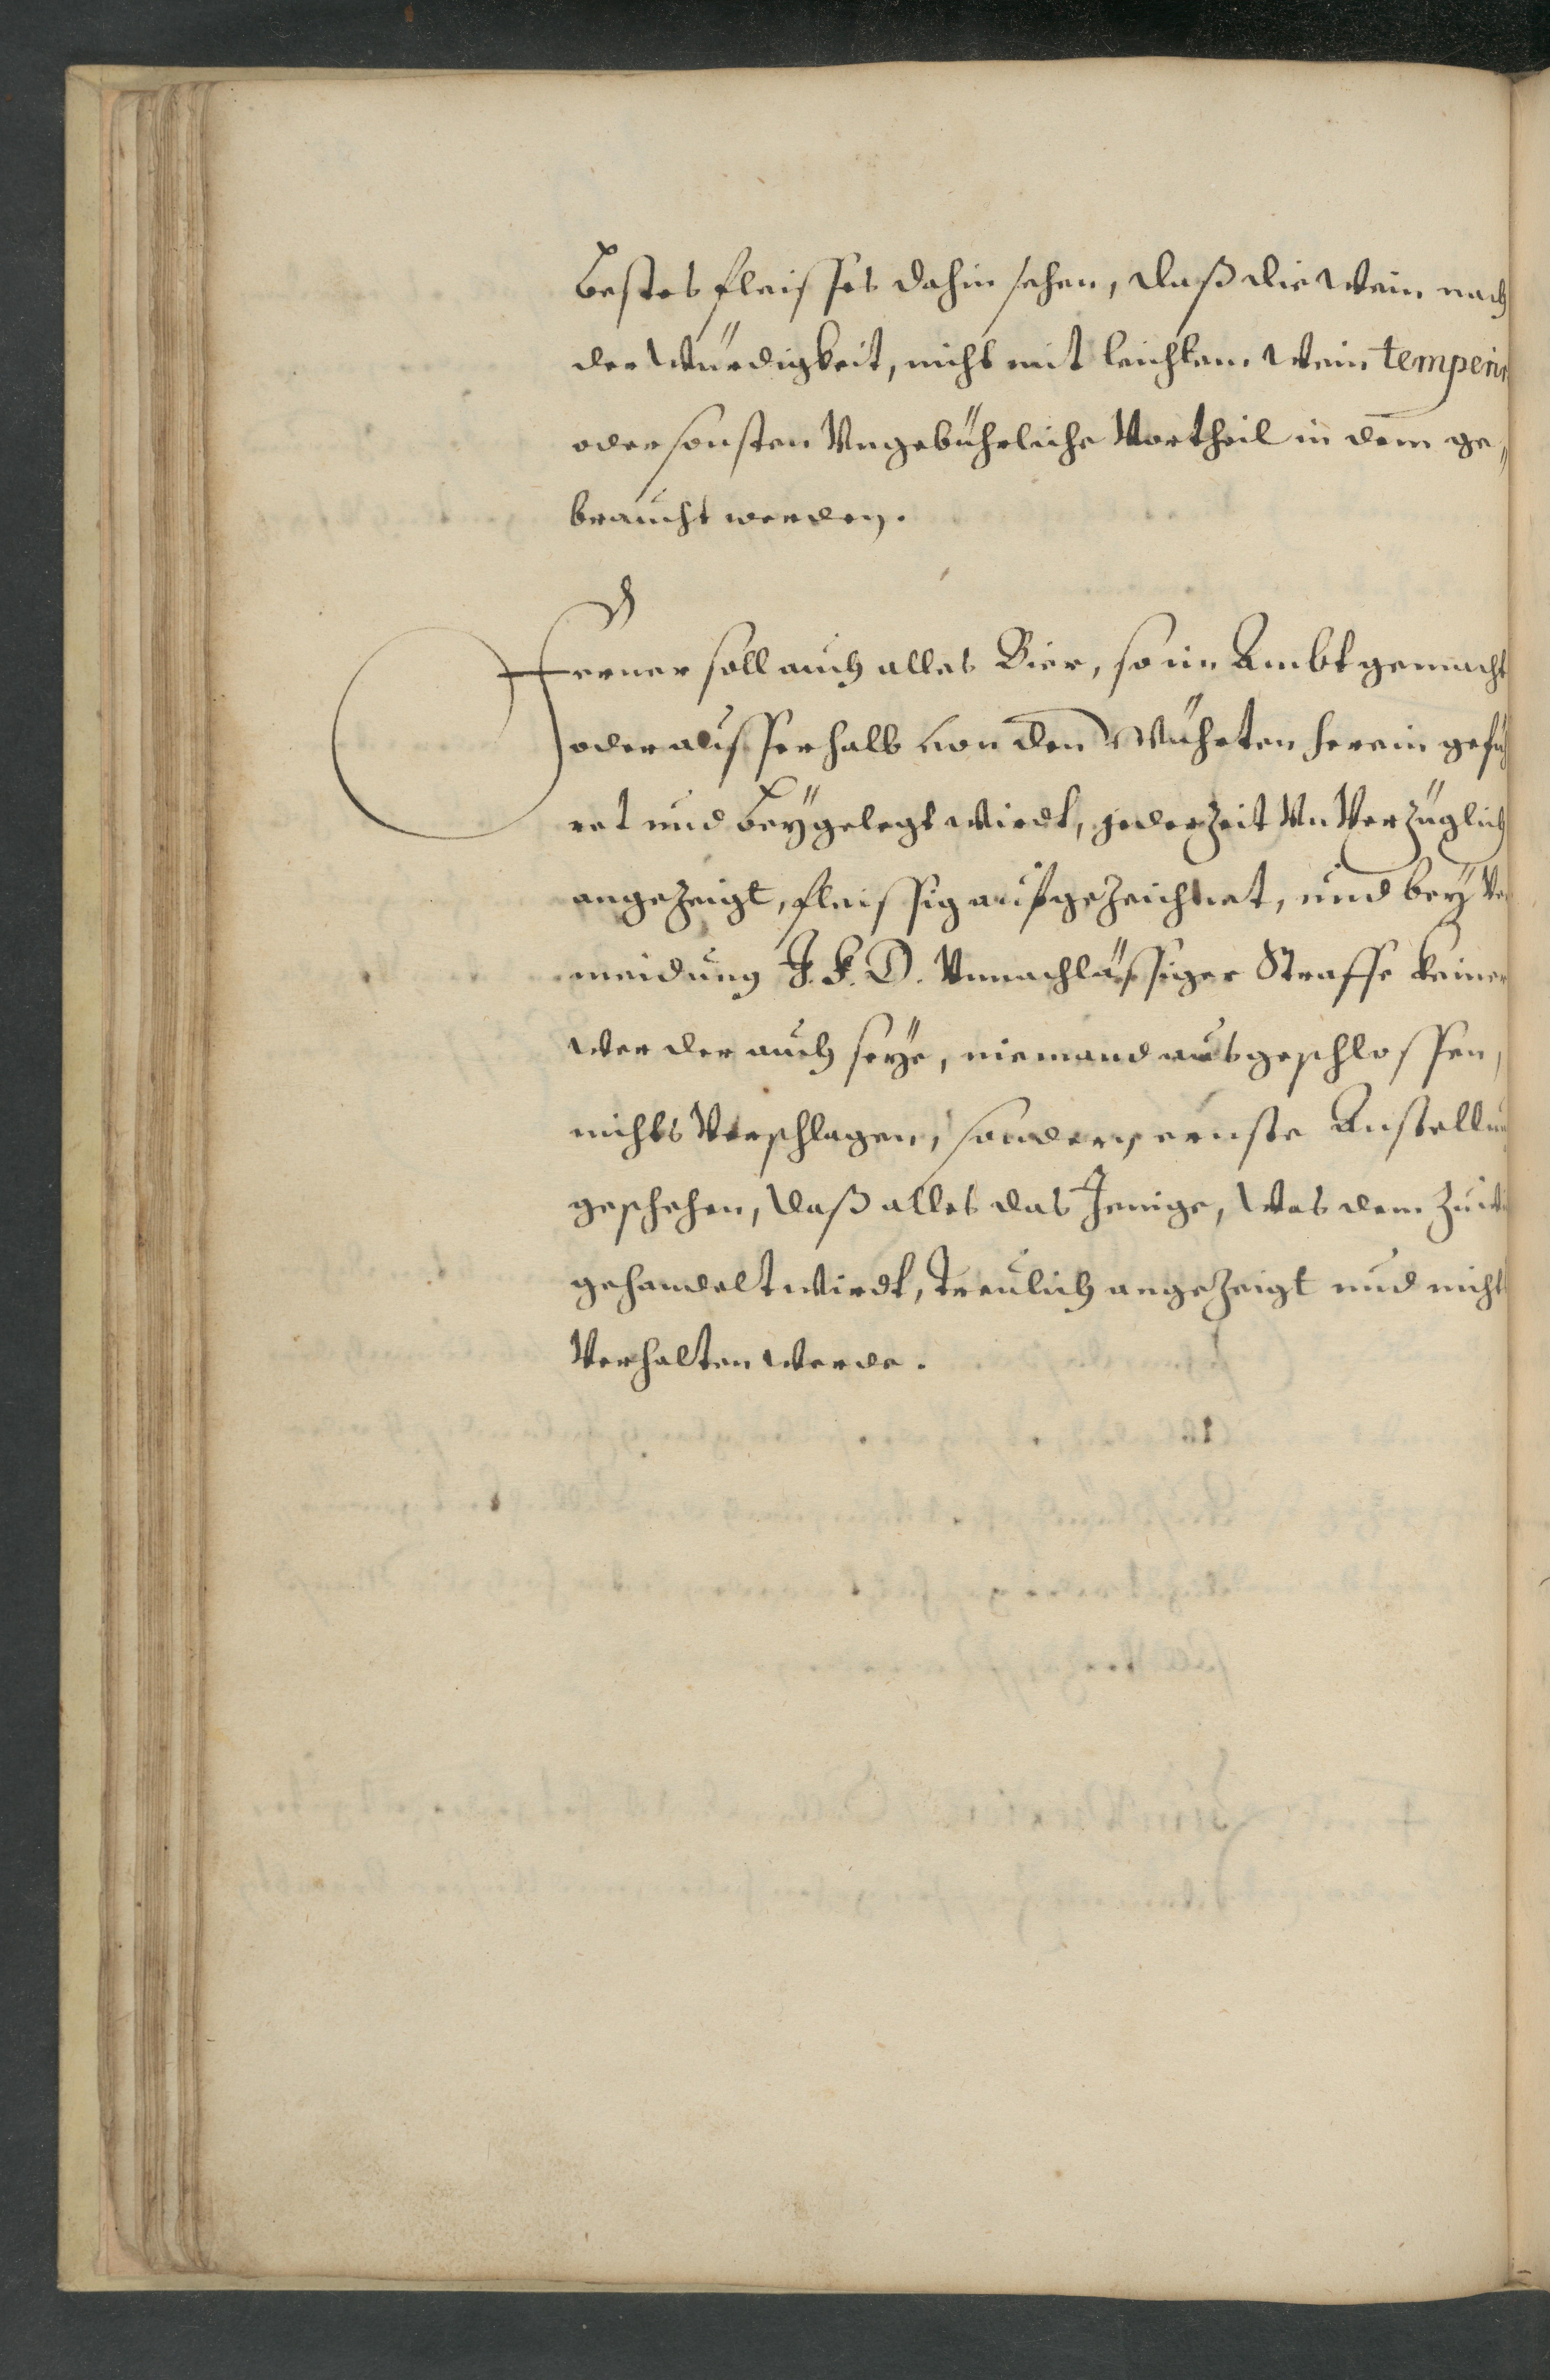 bestes fleisses dahin sehen, daß die Wein nach
der Würdigkeit, nicht mit leichtem Wein temperir
oder sonsten Vngebührliche Vortheil in dem ge„
braucht werden.
Ferner soll auch alles Bier, so im Ambt gemacht
oder ausserhalb von den Würten herein gefüh
ret und beÿgelegt wirdt, jederzeit VnVerzüglich
angezeigt, fleissig aufgezeichnet, und beÿ Ver
meidung J. F. D. Vnnachlässiger Straffe keiner
wer der auch seÿe, niemand ausgeschlossen,
nichts Verschlagen, sondern ernste Anstellung
geschehen, daß alles das Jenige, was dem zuwi
gehandelt wirdt, treulich angezeigt und nicht
Verhalten werde.